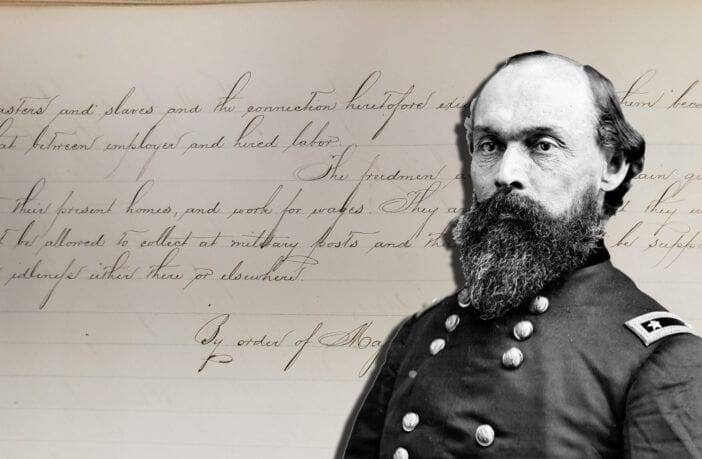 asters and slaves and the connection heretofore exi hem beco
at between employer and hired labor.
The freedmen a ain
their present homes, and work for wages. They a they w
be allowed to collect at military posts and th be suppo
idleness either there or elsewhere.
By order of Ma